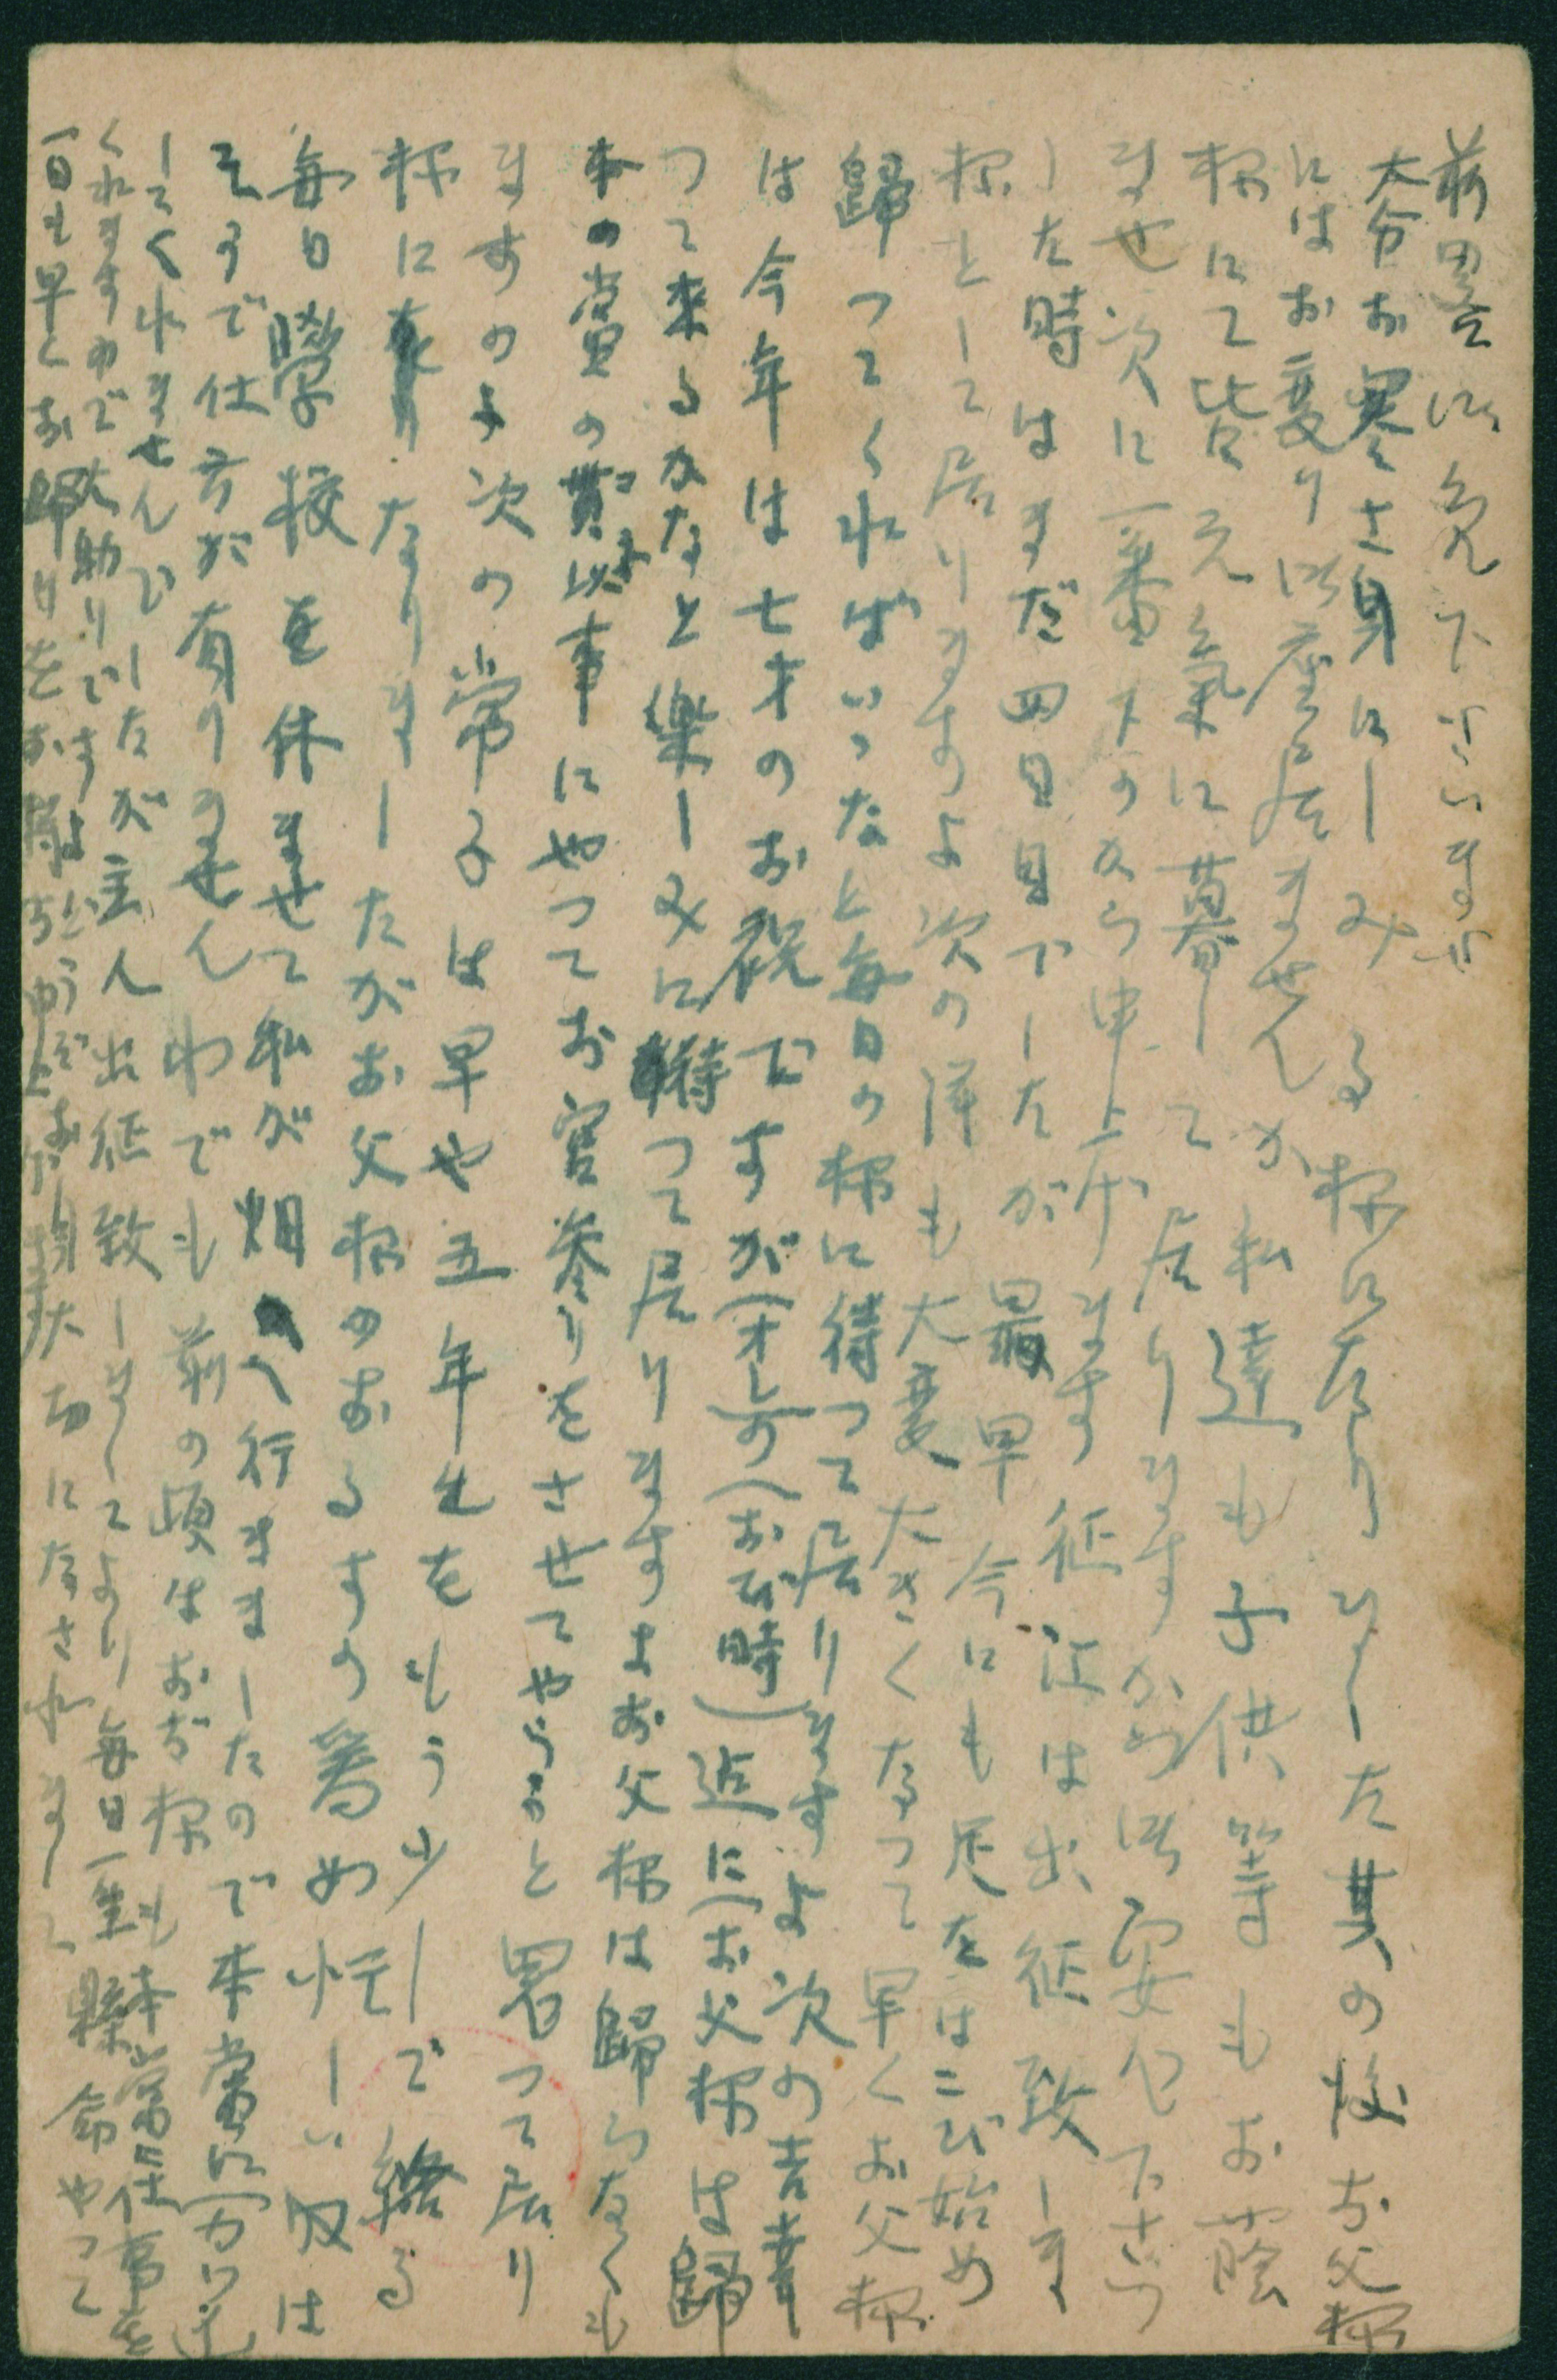 前畧御免下さいませ
大分お寒さ身にしみる様になりましたが其の後お父様
にはお変り御座居ませんか私達も子供等もお蔭
様にて皆元氣に暮して居りますから御安心下さい
ませ次に一番下から申上げます征江は出征致しま
した時はまだ四日目でしたが最早今にも足をはこび始め
様として居りますよ次の洋も大変大きくなって早くお父様
歸ってくればいいなと毎日の様に待って居りますよ次の吉幸
は今年は七才のお祝ですが(オレの(おび時)迄に(お父様は歸
って来るかなと樂しみに待って居りますよお父様は歸らなくも
本の當の事にやってお宮参りをさせてやらうと思って居り
ますの次の常子は早や五年生をもう少しで終る
様になりましたがお父様のおるすの為め忙しい収は
毎日學校を休ませて私が畑へ行きましたので本當に可
そうで仕方が有りませんわでも前の頃はおぢ様も本當に仕事を
してくれませんでしたが主人出征致しましてより毎日一生縣命やって
くれますので大助りですよどうぞお身大切になされまして
一日も早くお歸りをお待ち申上